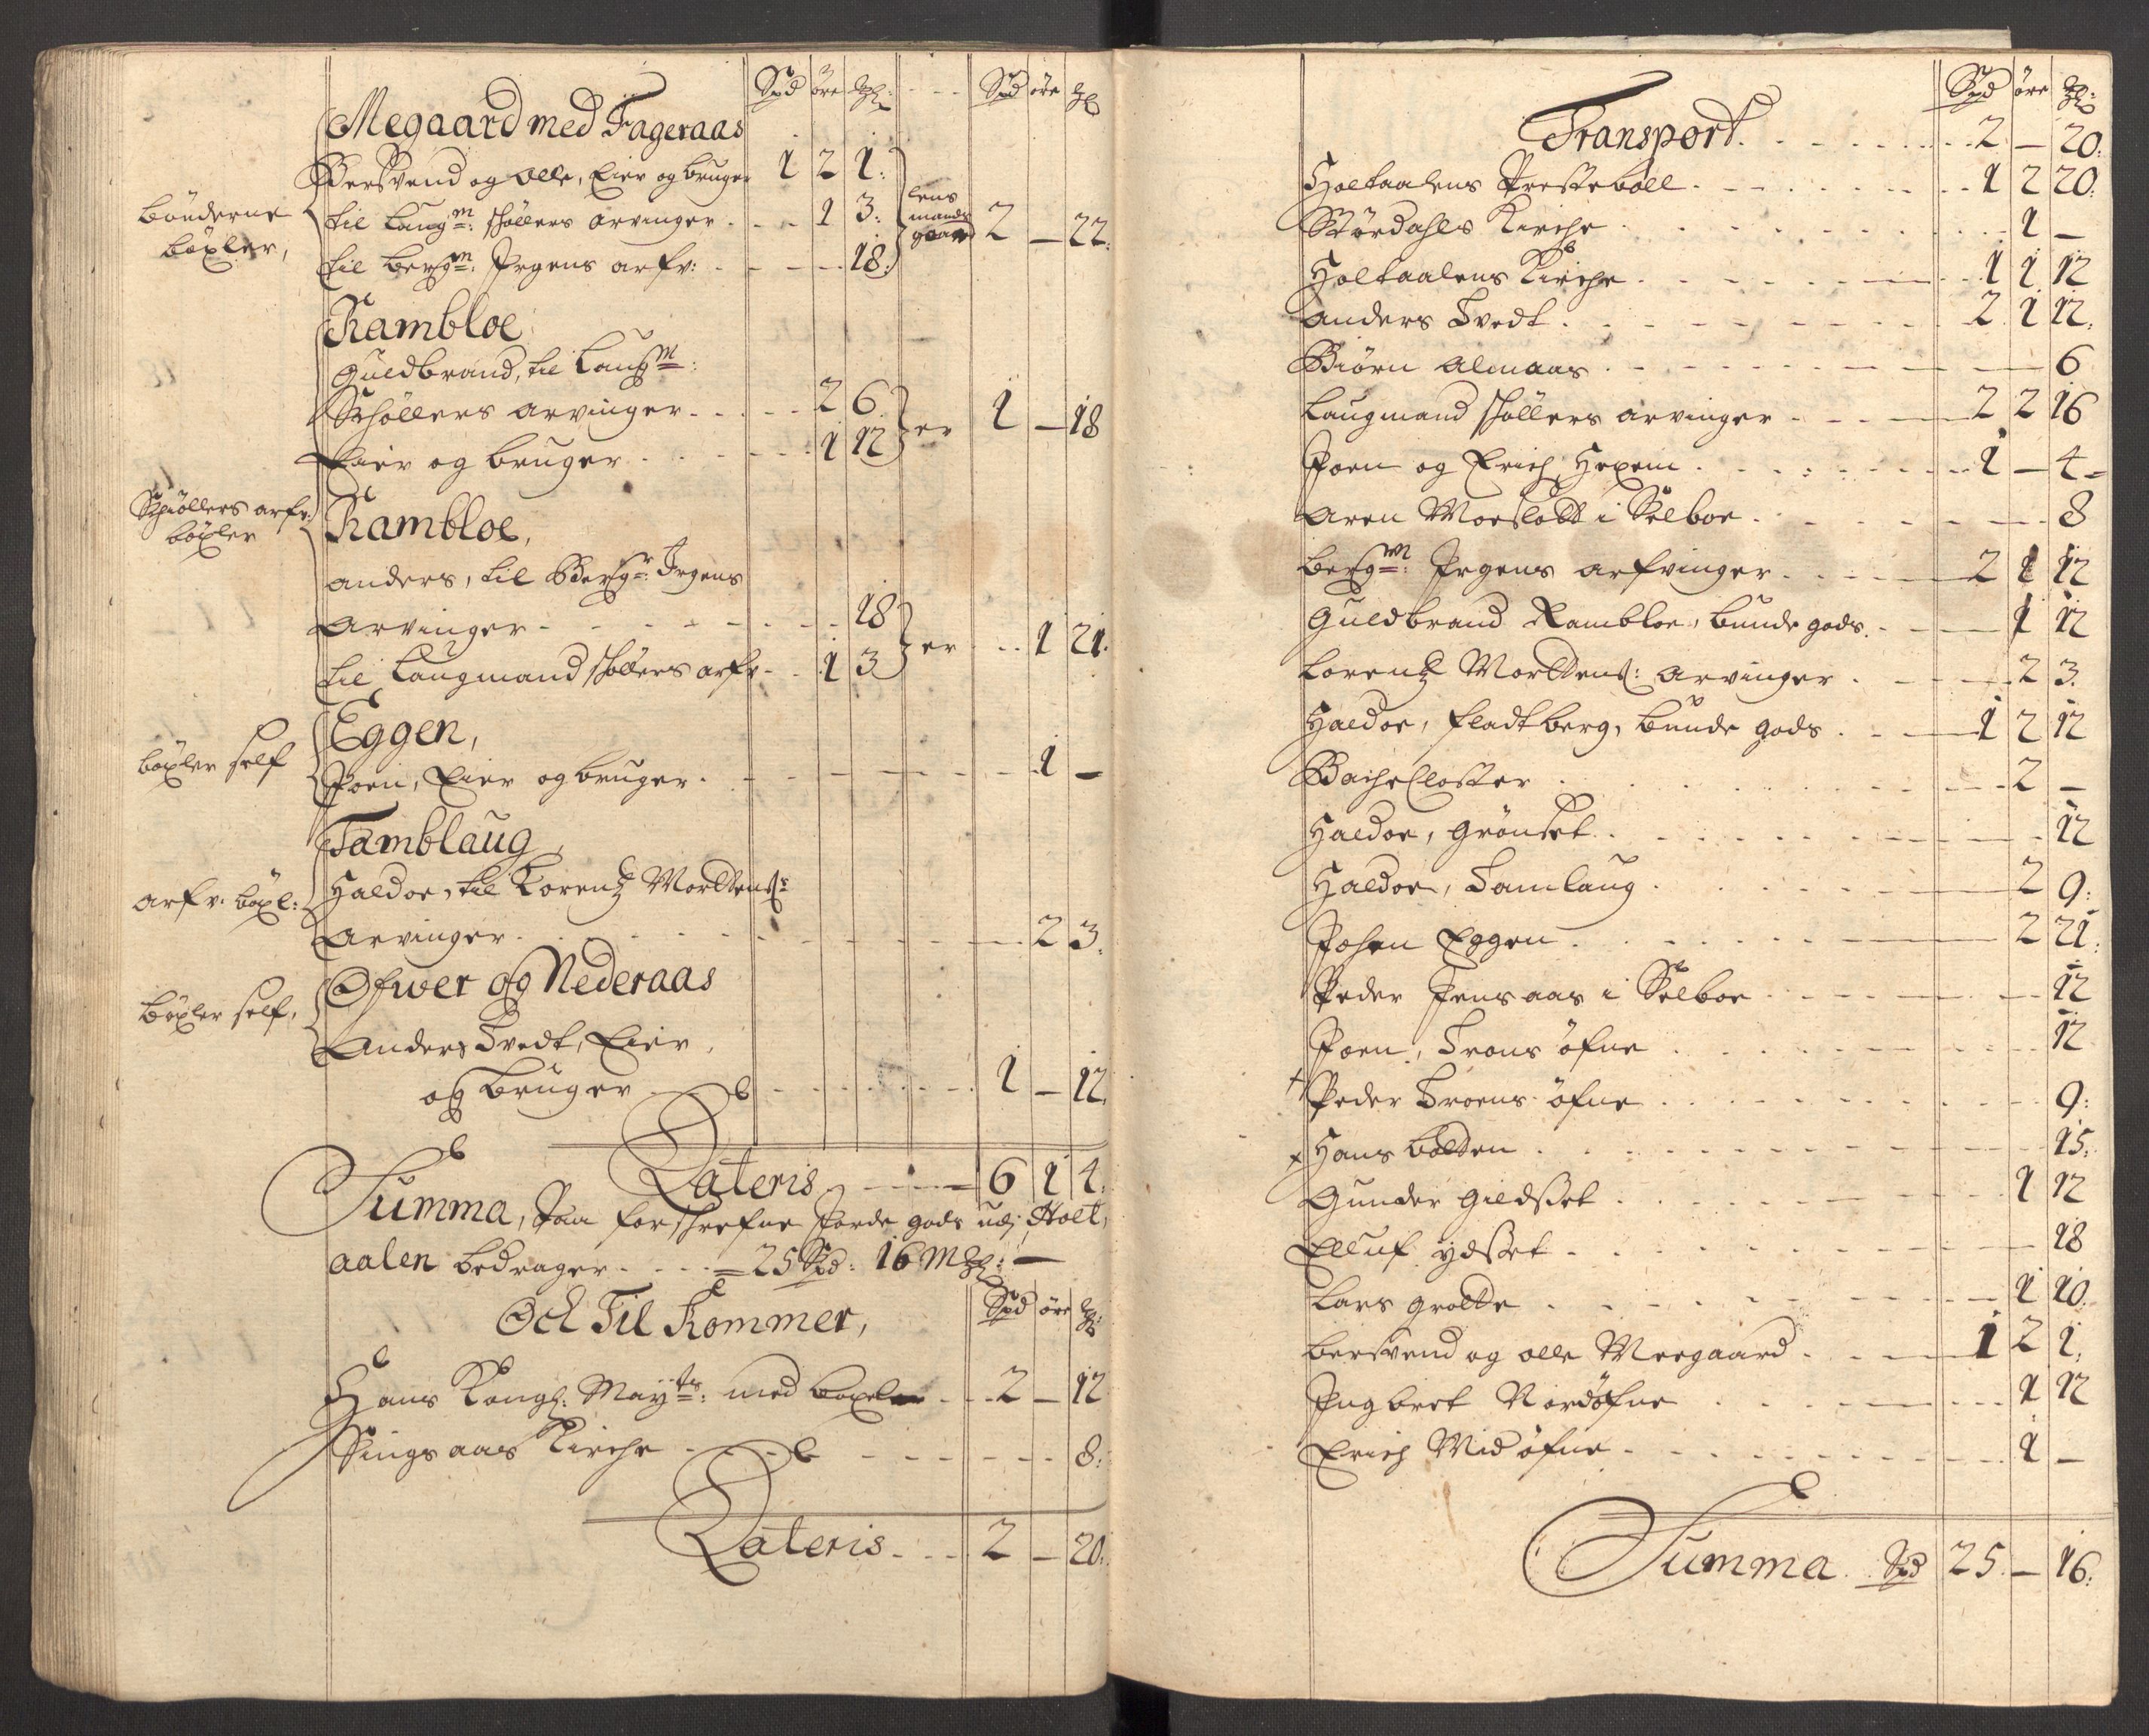 Spd öre ml: Spd öre ml
Megaard med Fageraas
Berswend og Olle, Eier og bruger 1 2 1:
bönderne böxler,
til Laugm: Schöllers Arvinger 1 3: lens mands gaard 2 — 22.
til bergm: Jrgens arfv: 18:
Rambloe
Guldbrand, til Laugm:
Schöllers Arvinger 2 6
Eier og bruger 1 12 er 1 — 18
Schiöllers arfv: böxler
Rambloe,
Anders, til Bergr: Jrgens
Arvinger 18
til Laugmand Schöllers arfv 1 3 er 1 21.
Eggen,
böxler self
Joen, Eier og bruger 1 —
Tamblaug,
arfv. böxl: Haldor, til Lorentz Mortens:
Arvinger 2 3.
Öfwer og Nederaas
böxler self,
Anders Tvedt, Eier,
og bruger 1 — 12.
Lateris 6 1 4.
Summa, Paa forschrefne Jorde gods udj Holt,
aalen bedrager 25 Spd: 16 Ml: —
Och Til Kommer, Spd öre ml:
Hans Kongl: Mayts: med böxel 2 — 12
Singsaas Kirche 8:
Lateris 2 — 20:
Spd öre ml:
Transport 2 — 20:
Holtaalens Presteboll 1 2 20:
Stördahls Kirche 1 —
Holtaalens Kirche 1 1 12
Anders Tvedt 2 1 12.
Biörn Almaas 6
Laugmand Schöllers Arvinger 2 2 16
Joen og Erich Hexem 1 — 4
Aren Morslett i Selboe 8
bergm: Jrgens arfvinger 2 1 12
Guldbrand Rambloe, bunde gods 1 12
Lorentz Mortens: Arvinger 2 3.
Haldor, fladtberg, bunde gods 1 2 12
Bache Closter 2 —
Haldor, Grönset 12
Haldor, Tamlaug 2 9:
Johan Eggen 2 21.
Peder Jensaas i Selboe 12
Joen, Trons öfne 12
+ Peder Troens öfne 9:
+ Hans bolden 15:
Gunder Gildset 1 12
Elluf ydset 18
Lars grotte 1 10
berswend og olle Meegaard 1 2 1.
Jngbret Nordöfne 1 12
Erich Midöfne 1 —
Summa Spd 25 — 16: